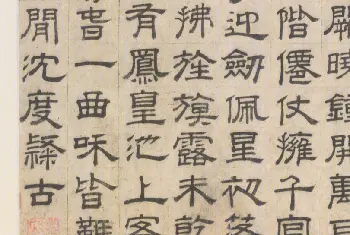 闕曉鐘開萬
階僊仗擁千官
迎劒佩星初落
拂旌旗露未乾
有鳳皇池上客
春一曲咊皆難
閒沈度隸古